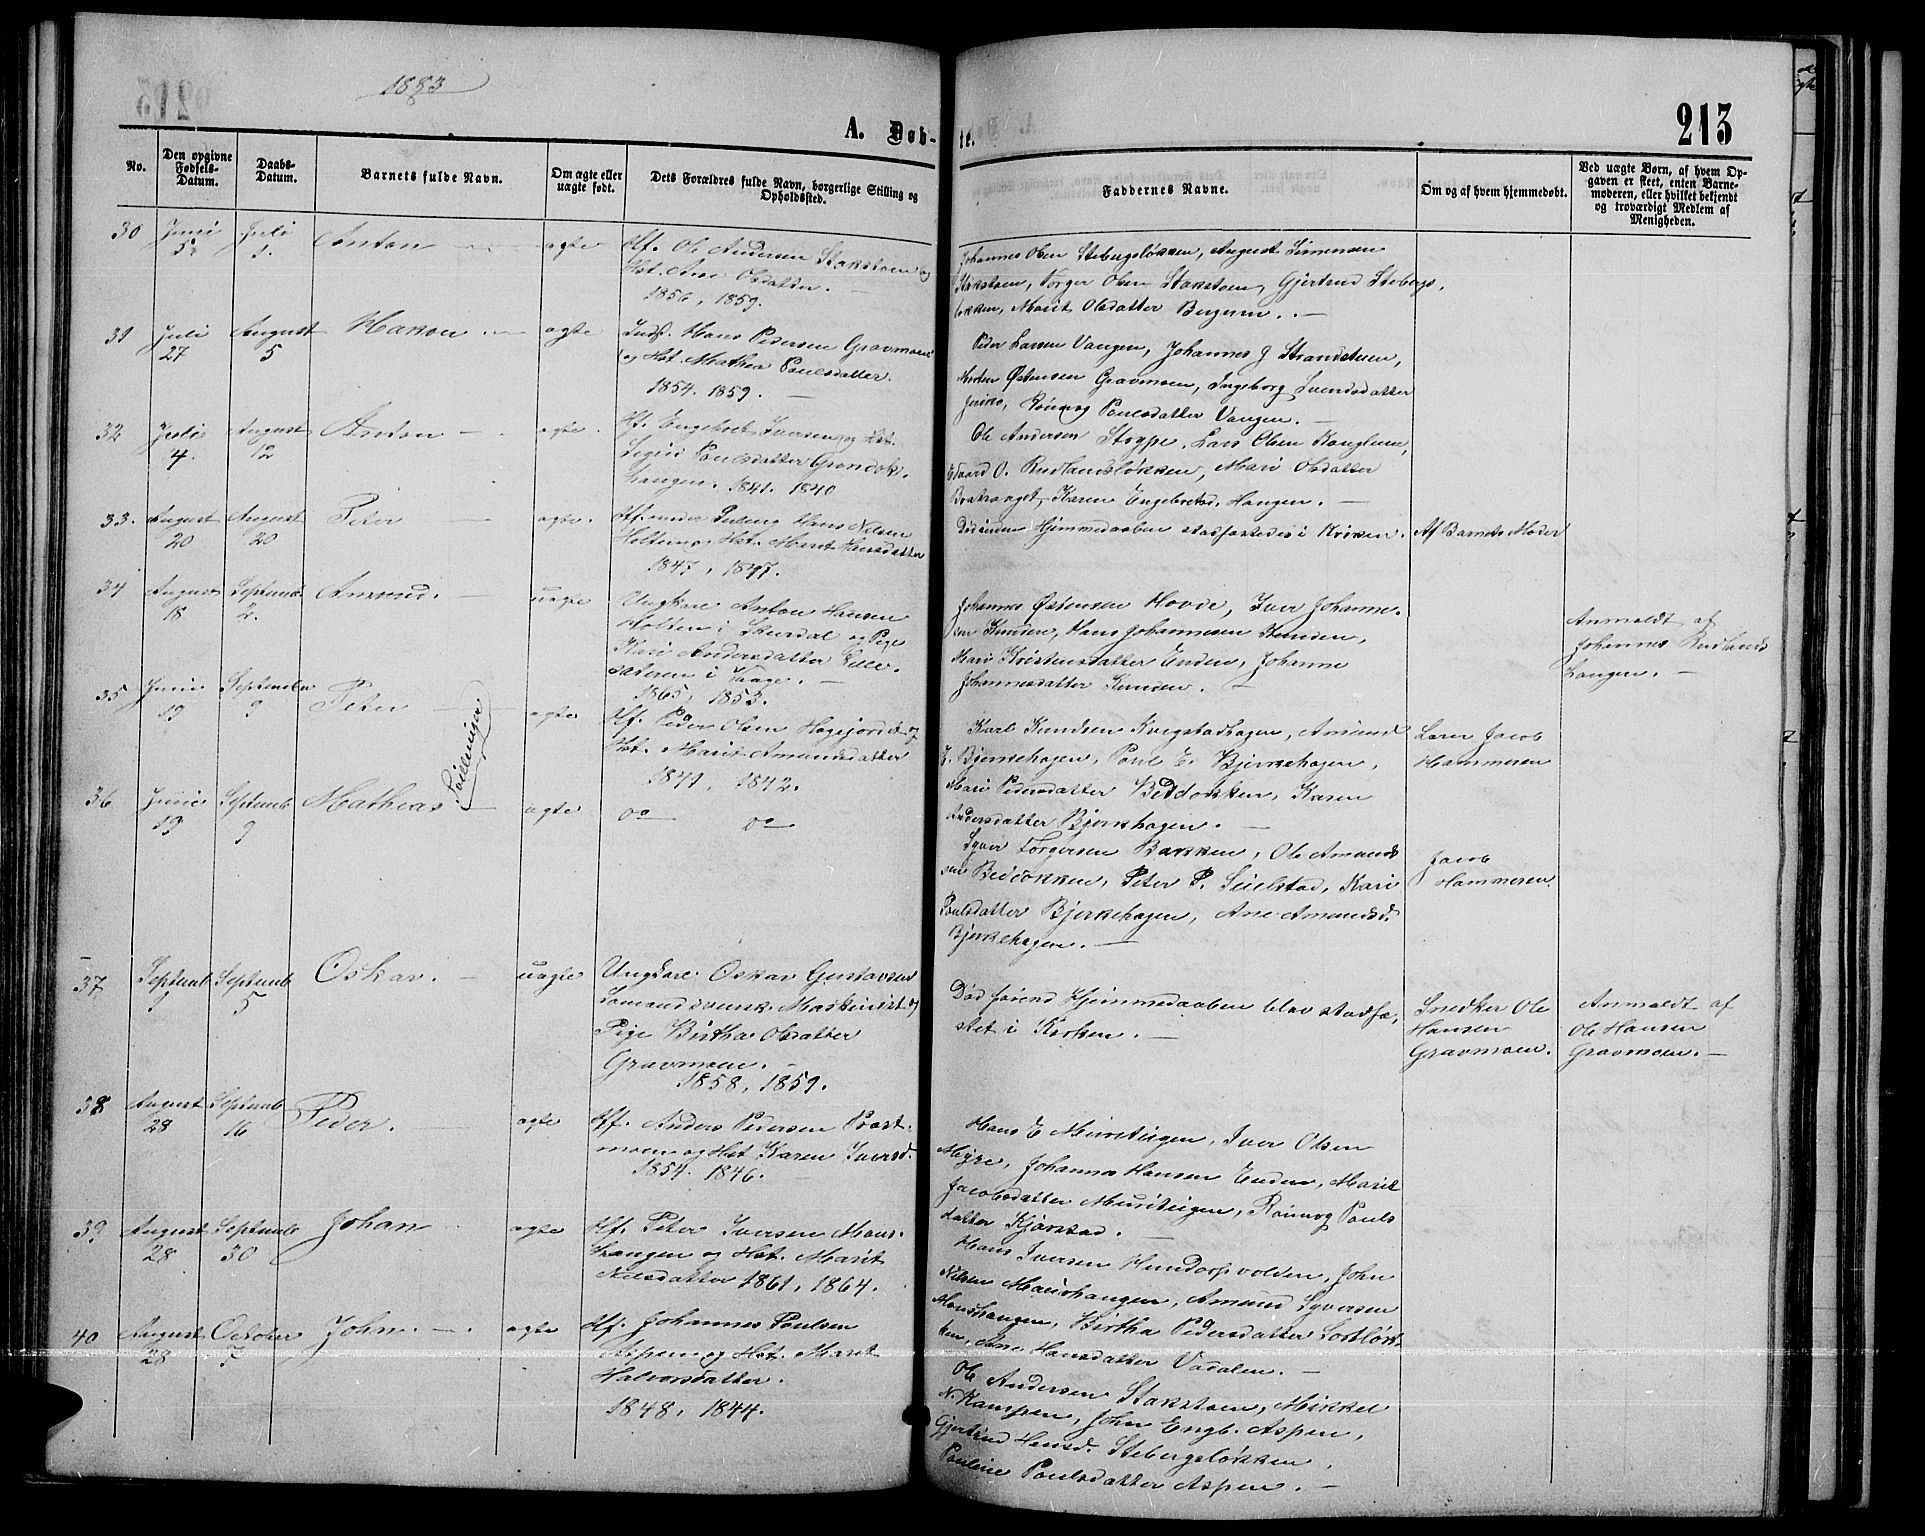 1883
213
A. Døb-
te.
No.
Den opgivne
Fødsels-
Datum.
Daabs-
Datum.
Barnets fulde Navn.
Om ægte eller
uægte født.
Dets Forældres fulde Navn, borgerlige Stilling og
Opholdssted.
Faddernes Navne.
Om og af hvem hjemmedøbt.
Ved uægte Børn, af hvem Op-
gaven er skeet, enten Barne-
moderen, eller hvilket bekjendt
og troværdigt Medlem af
Menigheden.
30 Juni Juli Anton ægte Hf. Ole Andersen Stakstoen og
5 1. Hst. Ane Olsdatter.
1856, 1859.
Johannes Olsen Stebergsløkken, August Simensen
Stakstoen, Torger Olsen Stakstoen, Gjertrud Stebergs-
løkken, Marit Olsdatter
31 Juli August Hakon ægte Inds. Hans Pedersen Gravmoen
27 5 og Hst. Mathea Poulsdatter.
1854. 1859.
Peder Larsen Vangen, Johannes J Strandstuen,
Morten Østensen Gravmoen, Ingeborg Svendsdatter
Rønnog Poulsdatter Vangen.
32 Juli August Anton ægte. Hf. Engebret Iversen og Hst.
4. 12 Sigrid Poulsdatter
hangen. 1841. 1840
Ole Andersen Stoype, Lars Olsen
O. Rudlandsløkken, Mari Olsdatter
Karen Engebretsd. Hangen.
33. August August Peter ægte. Hf. Hans Nilsen
20 20 Holten og Hst. Marit Hansdatter
1847, 1847.
Død inden Hjemmedaaben stadfæstedes i Kirken. Af Barnets Moder
34 August Septemb. Amund. uægte Ungkarl Anton Hansen
18 2. Holten i Skurdal og Pige
Kari Andersdatter Lille-
sæteren i Vaage.
1865, 1853.
Johannes Østensen Hovde, Iver Johanne-
sen Kunden, Hans Johannesen Kunden,
Mari Kristensdatter Enden, Johanne
Johannesdatter Kunden.
Anmeldt af
Johannes Rudlands
hangen.
35 Juni September Peter ægte Hf. Peder Olsen Hagejordet og
19 9 Hst. Marit Amundsdatter
1841, 1842.
Tvillinger
Karl Knudsen Kvegstadhagen, Amund
E. Bjerkehagen, Poul E. Bjerkehagen,
Mari Pedersdatter Beddokken, Karen
Andersdatter Bjerkhagen.
Lærer Jacob
Hammersen
36 Juni Septemb Mathias ægte do do
19 9
Syver Torgersen Bakken, Ole Amunds
sen Beddokken, Peter P. Seielstad, Kari
Poulsdatter Bjerkehagen, Ane Amundsd.
Bjerkehagen.
Jacob
Hammersen.
37 Septemb Septemb Oskar. uægte Ungkarl Oskar Gustavsen
1 5 svensk Maskinist og
Pige Birtha Olsdatter
Gravmoen.
1858, 1859.
Død førend Hjemmedaaben blev stadfæ-
stet i Kirken.
Snedker Ole
Hansen
Gravmoen.
Anmeldt af
Ole Hansen
Gravmoen.
38 August Septemb Peder. ægte Hf. Anders Pedersen Præst-
28 16 moen og Hst Karen Iversd.
1854. 1846.
Hans E Muretuegen, Iver Olsen
Myre, Johannes Hansen Enden, Marit
Jacobsdatter Muretuegen, Rønnog Pouls
datter Kjørstad.
39 August Septemb Johan ægte Hf. Peter Iversen Maurs-
28 30 hangen og Hst. Marit
Nilsdatter 1861, 1864.
Hans Iversen Hundorpvolden, John
Nilsen Maurshangen, Amund Syversen
Maurshangen, Birtha Pedersdatter Sortløk-
ken, Ane Hansdatter Vadalen.
40 August October John. ægte Hf. Johannes Poulsen
28 7 Aspen og Hst. Marit
Halvorsdatter.
1848, 1844.
Ole Andersen Stakstoen, Mikkel
N. Kampen, John Engb. Aspen,
Gjertrud Hansd. Stebergsløkken,
Pauline Poulsdatter Aspen.